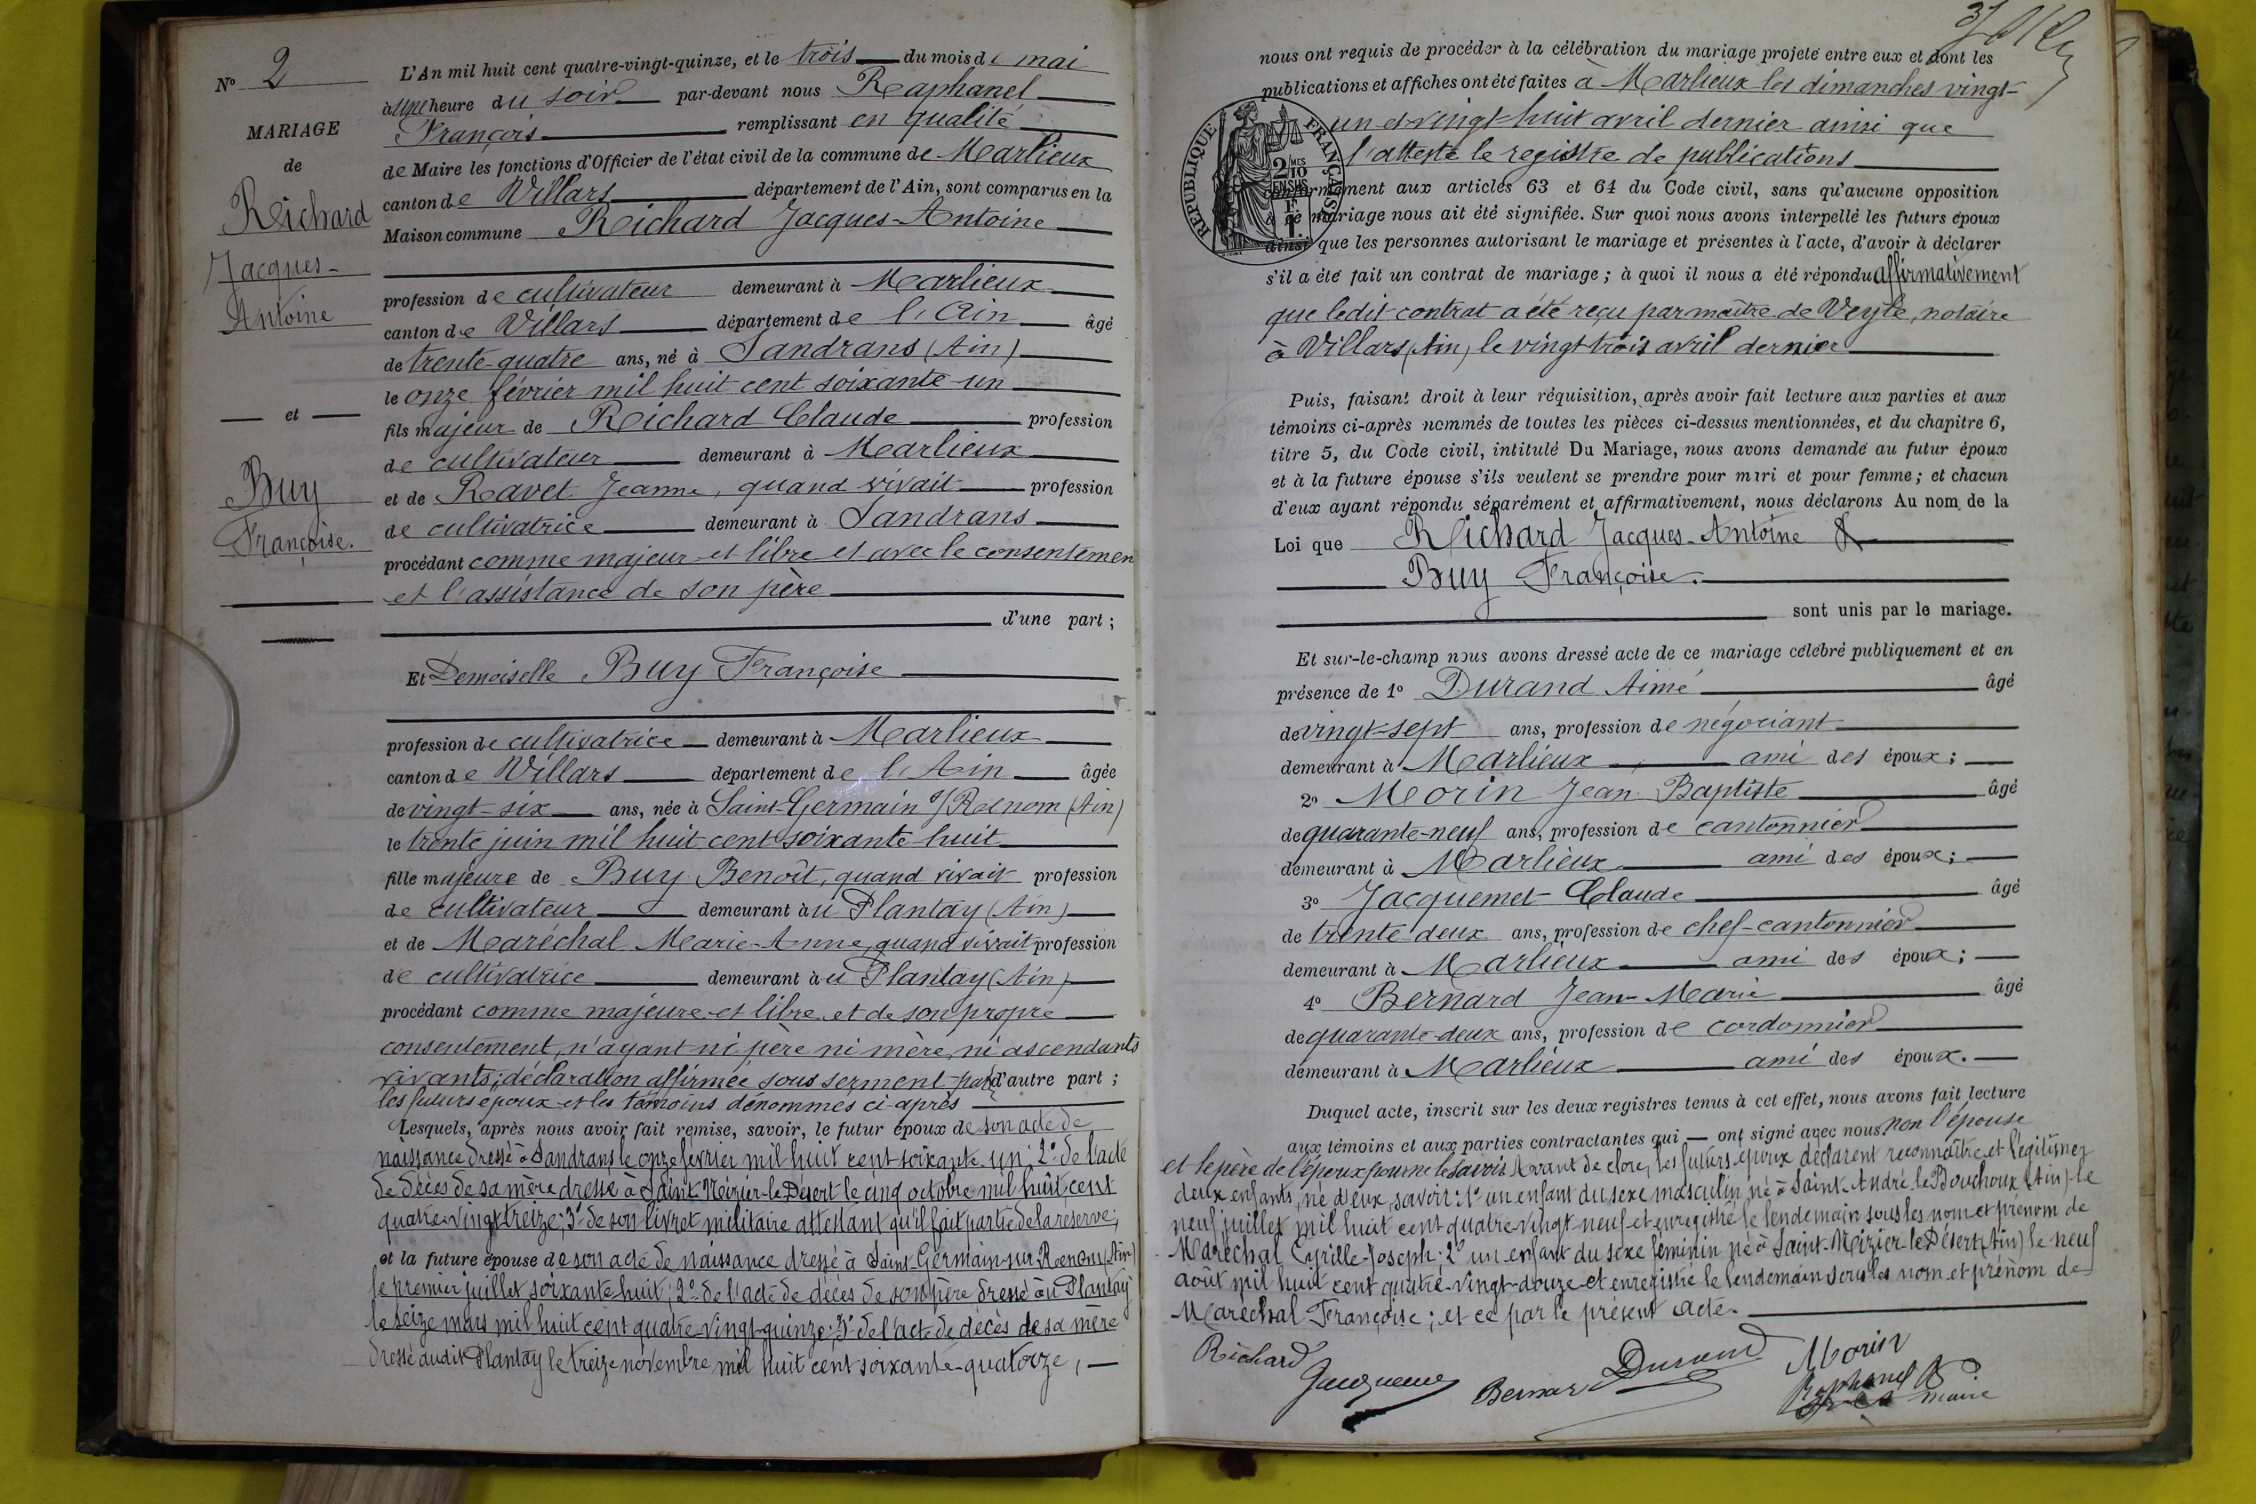 N° 2
MARIAGE
de
Richard
Jacques-
Antoine
et
Buy
Françoise.
L'An mil huit cent quatre-vingt-quinze, et le trois du mois de mai
à une heure du soir par-devant nous Raphanel
François remplissant en qualité
de Maire les fonctions d'Officier de l'état civil de la commune de Marlieux
canton de Villars département de l'Ain, sont comparus en la
Maison commune Richard Jacques-Antoine
profession de cultivateur demeurant à Marlieux
canton de Villars département de l'Ain âgé
de trente-quatre ans, né à Sandrans (Ain)
le onze février mil huit cent soixante un
fils majeur de Richard Claude profession
de cultivateur demeurant à Marlieux
et de Ravet Jeanne, quand vivait profession
de cultivatrice demeurant à Sandrans
procédant comme majeur et libre et avec le consentemen
et l'assistance de son père
d'une part ;
Et Demoiselle Buy Françoise
profession de cultivatrice demeurant à Marlieux
canton de Villars département de l'Ain âgée
de vingt-six ans, née à Saint-Germain s/ Renom (Ain)
le trente juin mil huit cent soixante huit
fille majeure de Buy Benoît, quand vivait profession
de cultivateur demeurant au Plantay (Ain)
et de Maréchal Marie-Anne, quand vivait profession
de cultivatrice demeurant au Plantay (Ain)
procédant comme majeure et libre et de son propre
consentement, n'ayant ni père ni mère, ni ascendants
vivants; déclaration affirmée sous serment par d'autre part ;
les futurs époux et les témoins dénommés ci-après
Lesquels, après nous avoir fait remise, savoir, le futur époux de son acte de
naissance dressé à Sandrans le onze février mil huit cent soixante un; 2° de l'acte
de décès de sa mère dressé à Saint-Nizier-le-Désert le cinq octobre mil huit cent
quatre-vingt treize; 3° de son livret militaire attestant qu'il fait partie de la réserve;
et la future épouse de son acte de naissance dressé à Saint-Germain-sur-Renom (Ain)
le premier juillet soixante huit; 2° de l'acte de décès de son père dressé au Plantay
le seize mars mil huit cent quatre-vingt-quinze; 3° de l'acte de décès de sa mère
dressé audit Plantay le treize novembre mil huit cent soixante-quatorze,
nous ont requis de procéder à la célébration du mariage projeté entre eux et dont les
publications et affiches ont été faites à Marlieux les dimanches vingt-
un et vingt-huit avril dernier ainsi que
l'atteste le registre de publications
conformément aux articles 63 et 64 du Code civil, sans qu'aucune opposition
à ce mariage nous ait été signifiée. Sur quoi nous avons interpellé les futurs époux
ainsi que les personnes autorisant le mariage et présentes à l'acte, d'avoir à déclarer
s'il a été fait un contrat de mariage ; à quoi il nous a été répondu affirmativement
que ledit contrat a été reçu par maître de Veyle, notaire
à Villars (Ain) le vingt trois avril dernier
RÉPUBLIQUE FRANÇAISE
2/10 MES
EN SUS
Puis, faisant droit à leur réquisition, après avoir fait lecture aux parties et aux
témoins ci-après nommés de toutes les pièces ci-dessus mentionnées, et du chapitre 6,
titre 5, du Code civil, intitulé Du Mariage, nous avons demandé au futur époux
et à la future épouse s'ils veulent se prendre pour mari et pour femme ; et chacun
d'eux ayant répondu séparément et affirmativement, nous déclarons Au nom de la
Loi que Richard Jacques-Antoine &
Buy Françoise.
sont unis par le mariage.
Et sur-le-champ nous avons dressé acte de ce mariage célébré publiquement et en
présence de 1° Durand Aimé âgé
de vingt-sept ans, profession de négociant
demeurant à Marlieux ami des époux ;
2° Morin Jean Baptiste âgé
de quarante-neuf ans, profession de cantonnier
demeurant à Marlieux ami des époux ;
3° Jacquemet Claude âgé
de trente-deux ans, profession de chef-cantonnier
demeurant à Marlieux ami des époux ;
4° Bernard Jean-Marie âgé
de quarante-deux ans, profession de cordonnier
demeurant à Marlieux ami des époux.
Duquel acte, inscrit sur les deux registres tenus à cet effet, nous avons fait lecture
aux témoins et aux parties contractantes qui ont signé avec nous non l'épouse
et le père de l'époux pour ne le savoir. Avant de clore, les futurs époux déclarent reconnaître et légitimer
deux enfants, né d'eux, savoir: 1° un enfant du sexe masculin, né à Saint-André-le-Bouchoux (Ain) le
neuf juillet mil huit cent quatre-vingt neuf et enregistré le lendemain sous les nom et prénom de
Maréchal Cyrille-Joseph; 2° un enfant du sexe féminin né à Saint-Nizier-le-Désert (Ain) le neuf
août mil huit cent quatre-vingt-douze et enregistré le lendemain sous les nom et prénom de
Maréchal Françoise; et ce par le présent acte.
Richard
Jacquemet
Bernard
Durand
Morin
Raphanel
maire